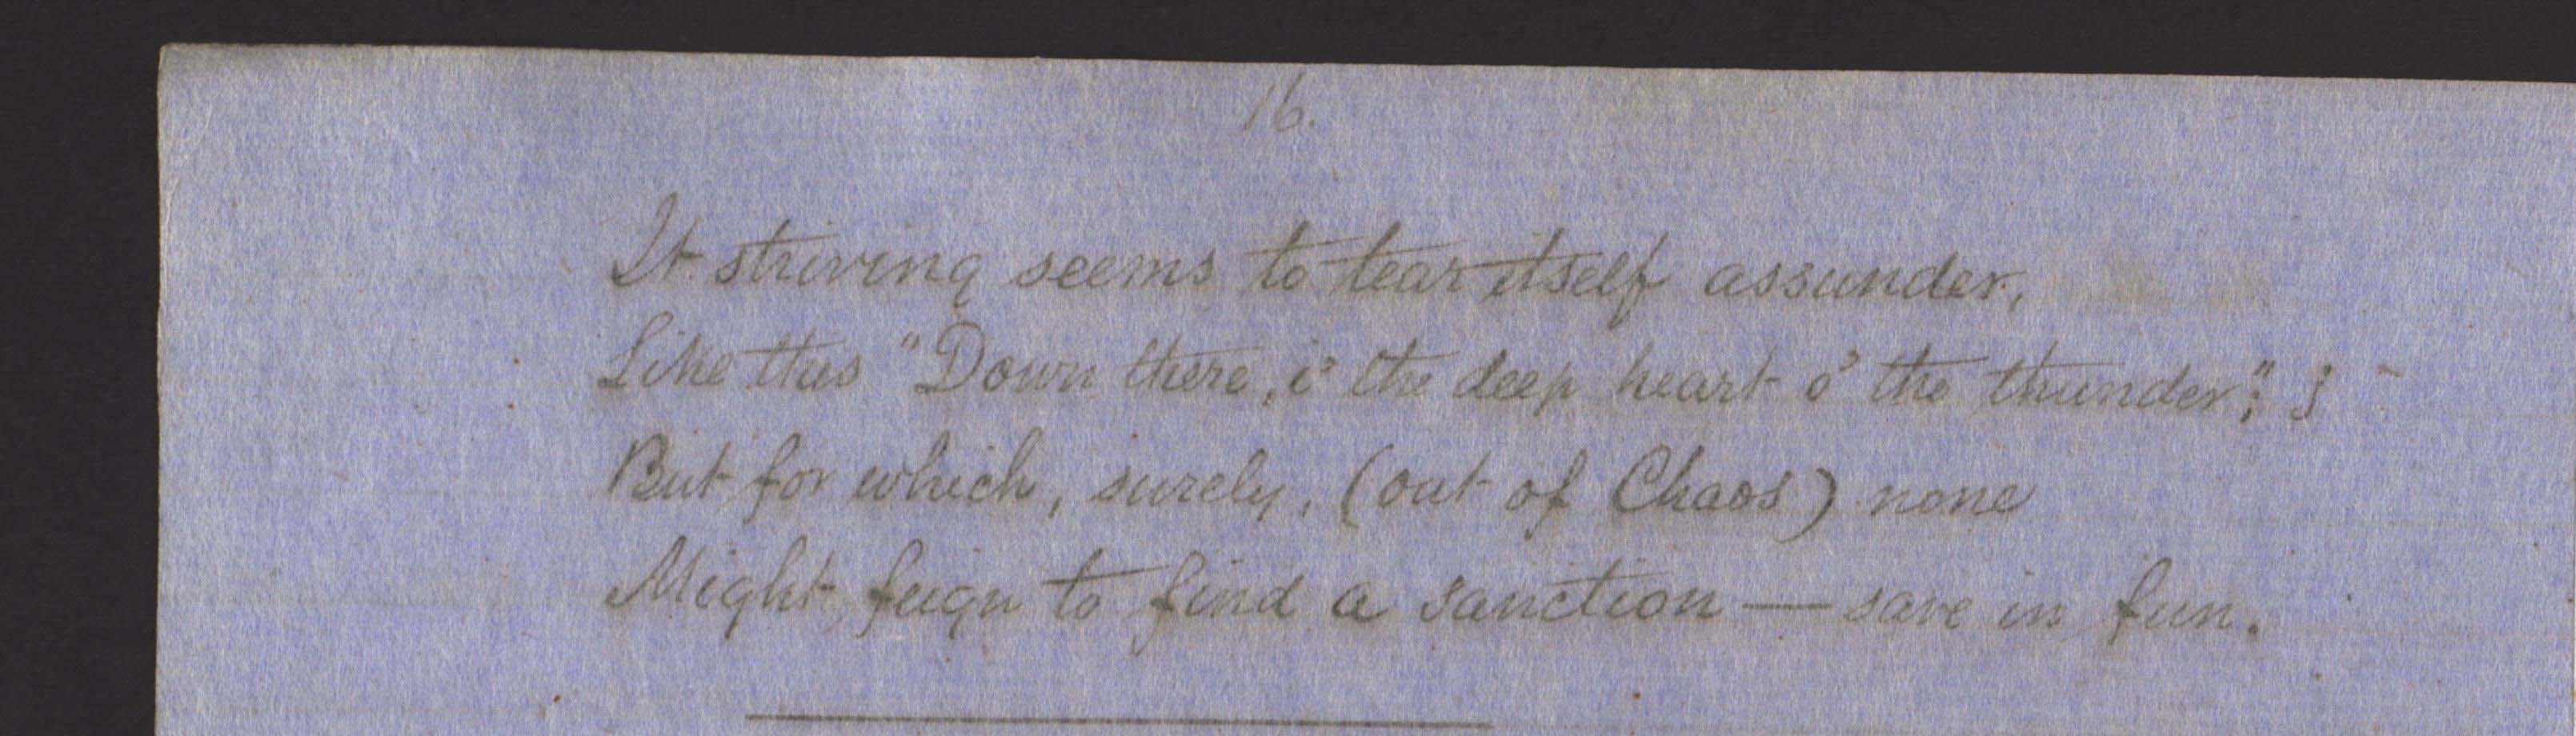 16.
It striving seems to tear itself assunder,
Like this "Down there, i' the deep heart o' the thunder";
But for which, surely, (out of Chaos) none
Might feign to find a sanction — save in fun.